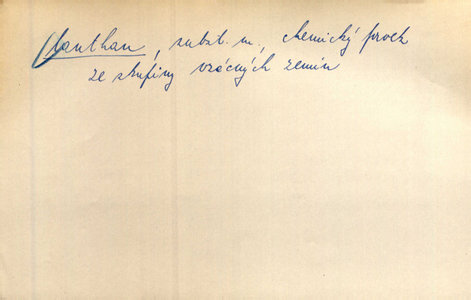 lanthan, subst. m., chemický prvek
ze skupiny vzácných zemin